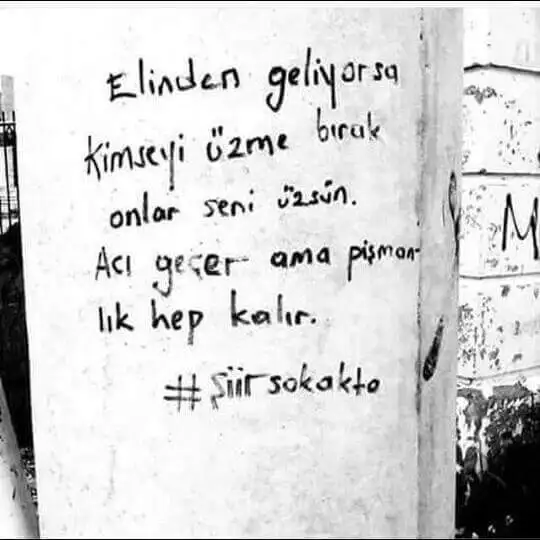 Elinden geliyorsa
kimseyi üzme bırak
onlar seni üzsün.
Acı geçer ama pişman-
lık hep kalır.
#şiirsokakta
M